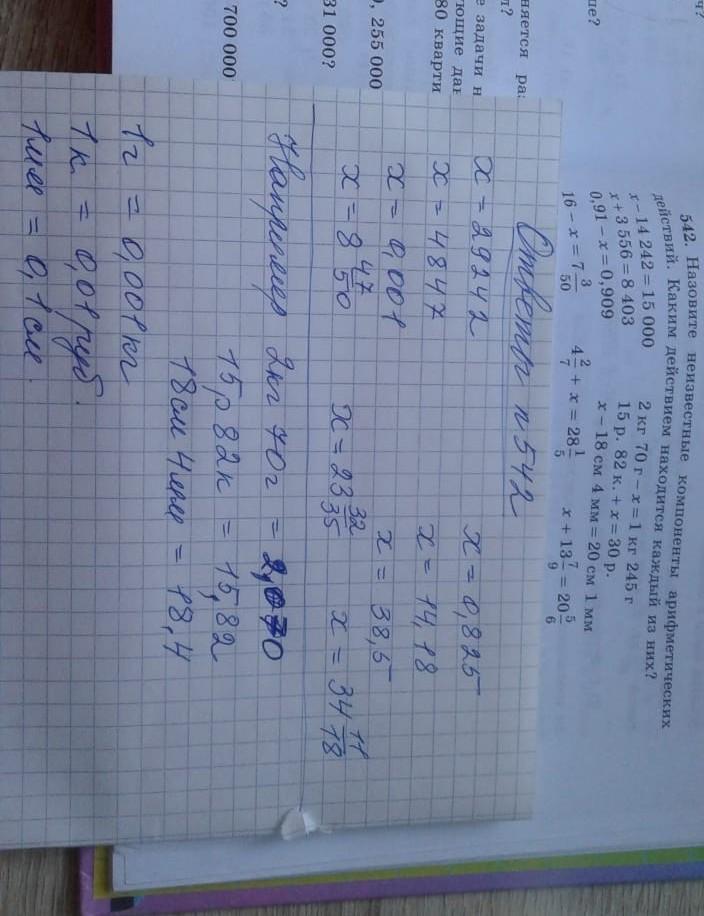 няется ра
л?
е задачи н
ующие да
80 кварти
, 255 000
31 000?
?
700 000
ше?
ч?
542. Назовите неизвестные компоненты арифметических
действий. Каким действием находится каждый из них?
x − 14 242 = 15 000 2 кг 70 г − x = 1 кг 245 г
x + 3 556 = 8 403 15 р. 82 к. + x = 30 р.
0,91 − x = 0,909 x − 18 см 4 мм = 20 см 1 мм
16 − x = 7 3/50 4 2/7 + x = 28 1/5 x + 13 7/9 = 20 5/6
Ответы №542
x = 29242 x = 0,825
x = 4847 x = 14,18
x = 0,001 x = 38,5
x = 8 47/50 x = 23 32/35 x = 34 11/18
Например 2кг 70г = 2,070
15р 82к = 15,82
18см 4мм = 18,4
1г = 0,001кг
1к = 0,01руб.
1мм = 0,1см.